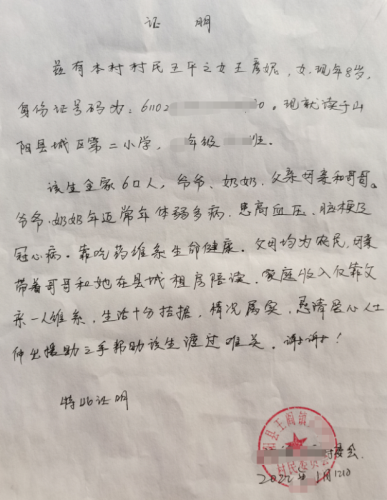 证 明
兹有本村村民王平之女王彦妮，女，现年8岁，
身份证号码为：61102 0，现就读于山
阳县城区第二小学， 年级 班。
该生全家6口人，爷爷、奶奶、父亲母亲和哥哥。
爷爷、奶奶年迈常年体弱多病，患高血压、脑梗及
冠心病。靠吃药维系生命健康。父母均为农民，母亲
带着哥哥和她在县城租房陪读，家庭收入仅靠父
亲一人维系，生活十分拮据，情况属实，恳请爱心人士
伸出援助之手帮助该生渡过难关。谢谢！
特此证明
村委会
2022年1月12日
阳县王阎镇
村民委员会